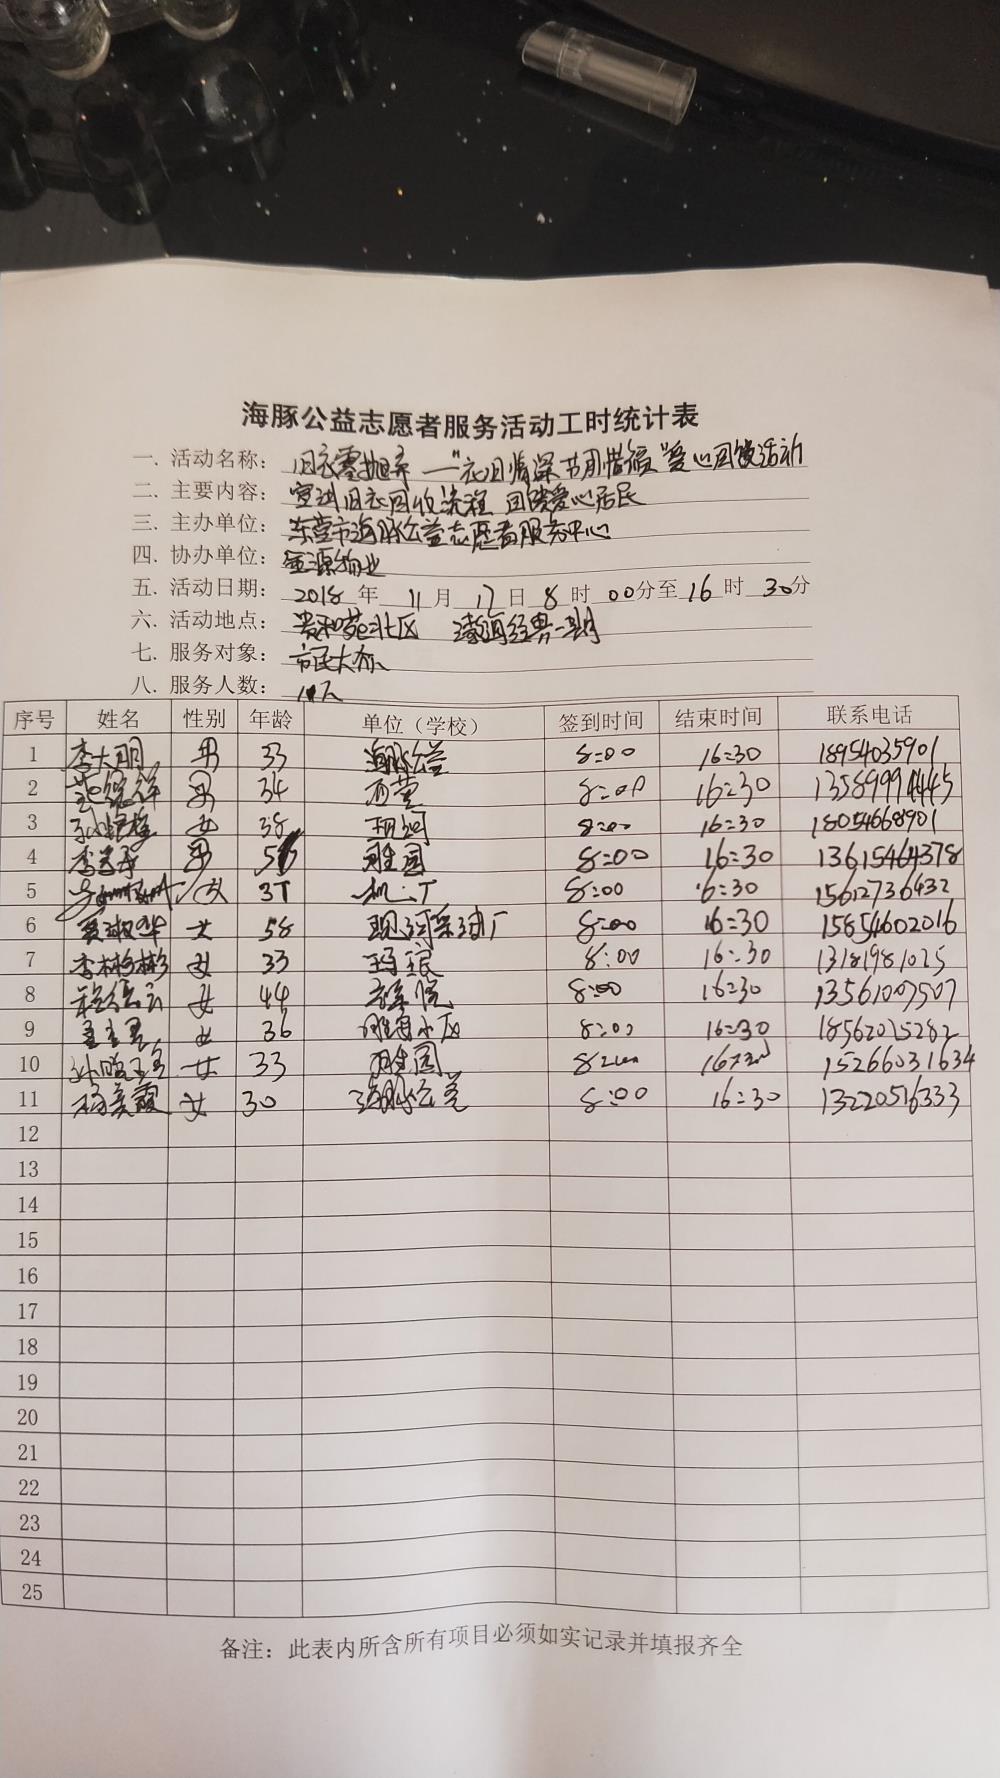 海豚公益志愿者服务活动工时统计表
一. 活动名称：旧衣零抛弃——“衣旧情深 节用惜福”爱心回馈活动
二. 主要内容：宣讲旧衣回收流程 回馈爱心居民
三. 主办单位：东营市海豚公益志愿者服务中心
四. 协办单位：金源物业
五. 活动日期：2018年11月17日8时00分至16时30分
六. 活动地点：北区 一期
七. 服务对象：市民大众
八. 服务人数：11人
序号 姓名 性别 年龄 单位（学校） 签到时间 结束时间 联系电话
1 李大朋 男 33 海豚公益 8:00 16:30 18954035901
2 男 34 西营 8:00 16:30
3 女 38 现河 8:00 16:30 18054668901
4 男 胜园 8:00 16:30 13615464378
5 8:00 16:30 15612736432
6 女 58 现河采油厂 8:00 16:30 15854602016
7 李彬彬 女 33 8:00 16:30 13181981025
8 女 44 8:00 16:30 13561007507
9 女 36 小区 8:00 16:30 18562025282
10 女 33 胜园 8:00 16:30 15266031634
11 杨美霞 女 30 海豚公益 8:00 16:30 13220516333
12
13
14
15
16
17
18
19
20
21
22
23
24
25
备注：此表内所含所有项目必须如实记录并填报齐全